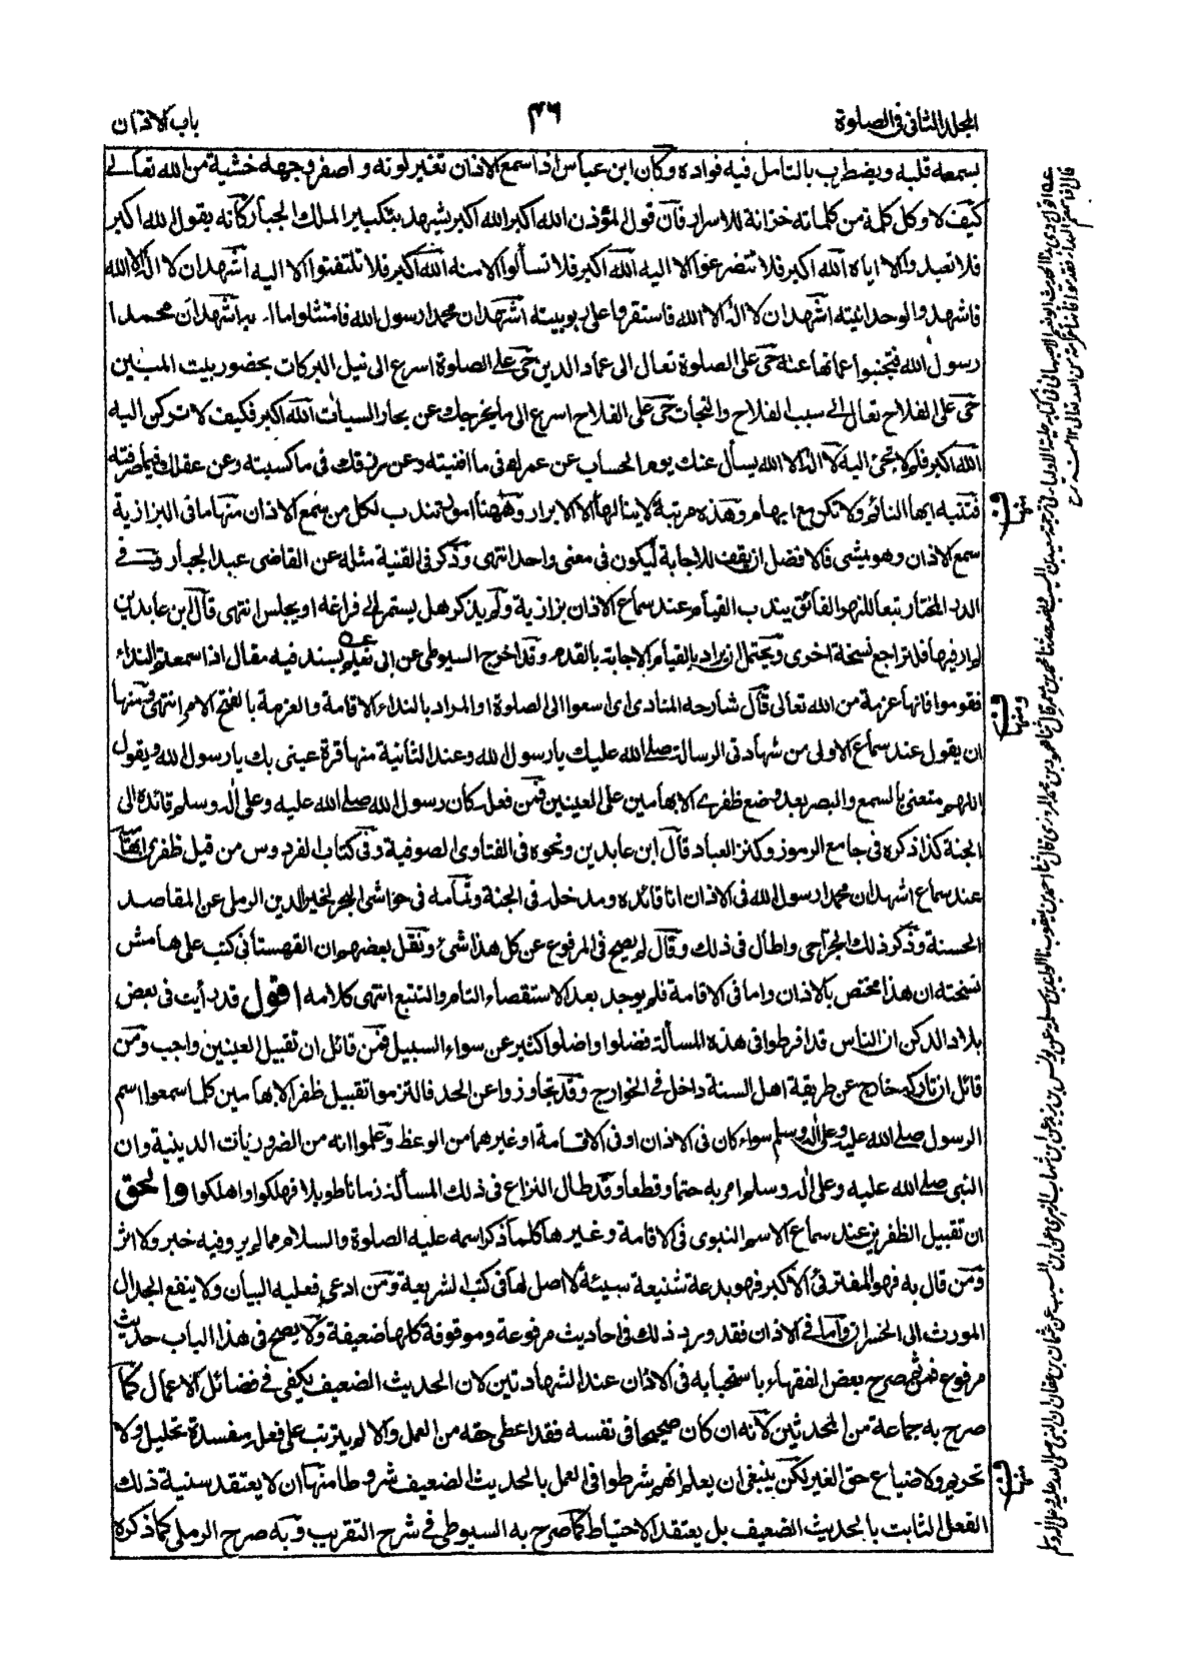 المجلد الثانى فى الصلوة
٤٦
باب الاذان
يسمعه قلبه ويضطرب بالتامل فيه فواده وكان ابن عباس اذا سمع الاذان تغير لونه واصفر وجهه خشية من الله تعالى
كيف لا وكل كلمة من كلماته خزانة للاسرار فان قول المؤذن الله اكبر الله اكبر يشهد بتكبير الملك الجبار كانه يقول الله اكبر
فلا تعبدوا الا اياه الله اكبر فلا تتضرعوا الا اليه الله اكبر فلا تسألوا الا منه الله اكبر فلا تلتفتوا الا اليه اشهد ان لا اله الا الله
فاشهدوا لوحدانيته اشهد ان لا اله الا الله فاستقروا على ربوبيته اشهد ان محمدا رسول الله فامتثلوا ما امر به اشهد ان محمدا
رسول الله فتجنبوا عما نها عنه حى على الصلوة تعال الى عماد الدين حى على الصلوة اسرع الى نيل البركات بحضور بيت المبين
حى على الفلاح تعال الى سبب الفلاح والنجات حى على الفلاح اسرع الى ما يخرجك عن بحار السيات الله اكبر فكيف لا تركن اليه
الله اكبر فلم لا تجئ اليه لا اله الا الله يسأل عنك يوم الحساب عن عمرك فى ما افنيته وعن رزقك فى ما كسبته وعن عقلك فيما صرفته
فتنبه ايها النائم ولا تكن مع ايهام وهذه مرتبة لا ينالها الا الابرار وههنا امور تندب لكل من سمع الاذان منها ما فى البزازية
سمع الاذان وهو يمشى فالافضل ان يقف للاجابة ليكون فى معنى واحد انتهى وذكر فى القنية مثله عن القاضى عبد الجبار وفى
الدر المختار تبعا للنهر الفائق يندب القيام عند سماع الاذان بزازية ولم يذكر هل يستمر الى فراغه او يجلس انتهى قال ابن عابدين
لم ار فيها فلتراجع نسخة اخرى ويحتمل ان يراد بالقيام الاجابة بالقدم وقد اخرج السيوطى عن ابى نعيم بسند فيه مقال اذا سمعتم النداء
فقوموا فانها عزمة من الله تعالى قال شارحه المنادى اى اسعوا الى الصلوة او المراد بالنداء الاقامة والعزمة بالفتح الامر انتهى ومنها
ان يقول عند سماع الاولى من شهادتى الرسالة صلى الله عليك يا رسول الله وعند الثانية منها قرة عينى بك يا رسول الله ويقول
اللهم متعنى بالسمع والبصر بعد وضع ظفرى الابهامين على العينين فمن فعل كان رسول الله صلى الله عليه وعلى آله وسلم قائده الى
الجنة كذا ذكره فى جامع الرموز وكنز العباد قال ابن عابدين ونحوه فى الفتاوى الصوفية وفى كتاب الفردوس من قبل ظفرى ابهاميه
عند سماع اشهد ان محمدا رسول الله فى الاذان انا قائده ومدخله فى الجنة وتمامه فى حواشى البحر لخير الدين الرملى عن المقاصد
الحسنة وذكر ذلك الجراحى واطال فى ذلك وقال لم يصح فى المرفوع عن كل هذا شئ ونقل بعضهم ان القهستانى كتب على هامش
نسخته ان هذا مختص بالاذان واما فى الاقامة فلم يوجد بعد الاستقصاء التام والتتبع انتهى كلامه اقول قد رأيت فى بعض
بلاد الدكن ان الناس قد افرطوا فى هذه المسألة فضلوا واضلوا كثير عن سواء السبيل فمن قائل ان تقبيل العينين واجب ومن
قائل ان تاركه خارج عن طريقة اهل السنة داخل فى الخوارج وقد تجاوزوا عن الحد فالتزموا تقبيل ظفر الابهامين كلما سمعوا اسم
الرسول صلى الله عليه وعلى آله وسلم سواء كان فى الاذان او فى الاقامة او غيرهما من الوعظ وعلموا انه من الضروريات الدينية وان
النبى صلى الله عليه وعلى آله وسلم امر به حتما وقطعا وقد طال النزاع فى ذلك المسألة زمانا طويلا فهلكوا واهلكوا والحق
ان تقبيل الظفرين عند سماع الاسم النبوى فى الاقامة وغيرها كلما ذكر اسمه عليه الصلوة والسلام مما لم يرو فيه خبر ولا اثر
ومن قال به فهو المفترئ الاكبر فهو بدعة شنيعة سيئة لا اصل لها فى كتب الشريعة ومن ادعى فعليه البيان ولا ينفع الجدال
المورث الى الخسران واما فى الاذان فقد ورد ذلك فى احاديث مرفوعة وموقوفة كلها ضعيفة ولا يصح فى هذا الباب حديث
مرفوع فمن ثم صرح بعض الفقهاء باستحبابه فى الاذان عند الشهادتين لان الحديث الضعيف يكفى فى فضائل الاعمال كما
صرح به جماعة من المحدثين لانه ان كان صحيحا فى نفسه فقد اعطى حقه من العمل والا لم يترتب على فعل مفسدة تحليل ولا
تحريم ولا ضياع حق الغير لكن ينبغى ان يعلم انهم شرطوا فى العمل بالحديث الضعيف شروطا منها ان لا يعتقد سنية ذلك
الفعل الثابت بالحديث الضعيف بل يعتقد الاحتياط كما صرح به السيوطى فى شرح التقريب وبه صرح الرملى كما ذكره
ومنها
ومنها
ومنها